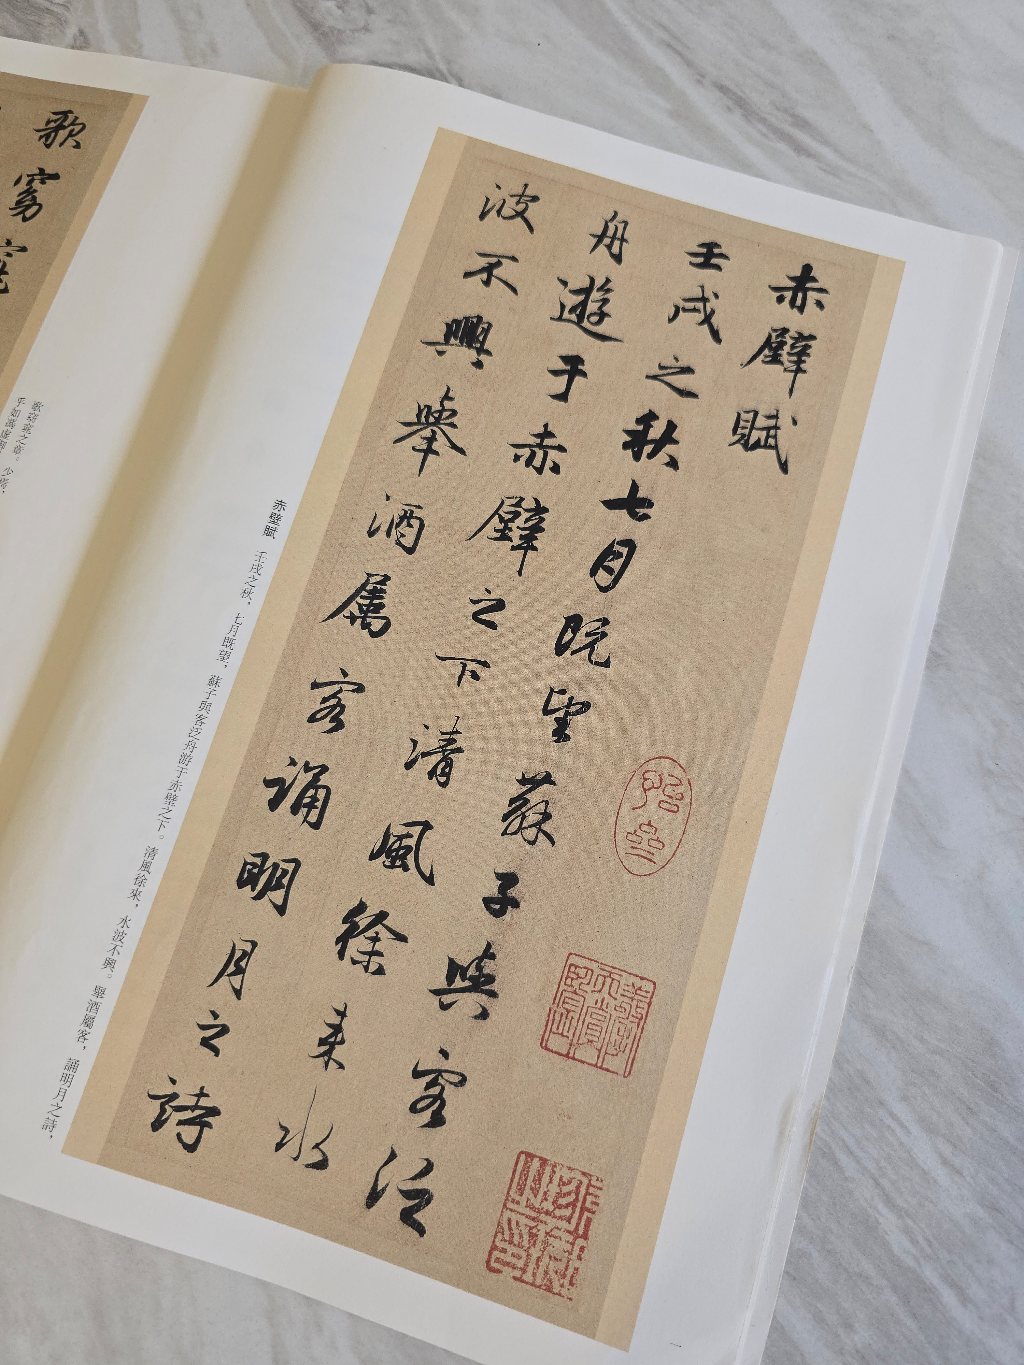 赤壁賦
壬戌之秋七月既望蘇子與客泛
舟遊于赤壁之下清風徐来水
波不興舉酒属客誦明月之詩
赤壁賦　壬戌之秋，七月既望，蘇子與客泛舟游于赤壁之下。清風徐來，水波不興。舉酒屬客，誦明月之詩，
歌窈窕
歌窈窕之章。少焉，
乎如憑虛